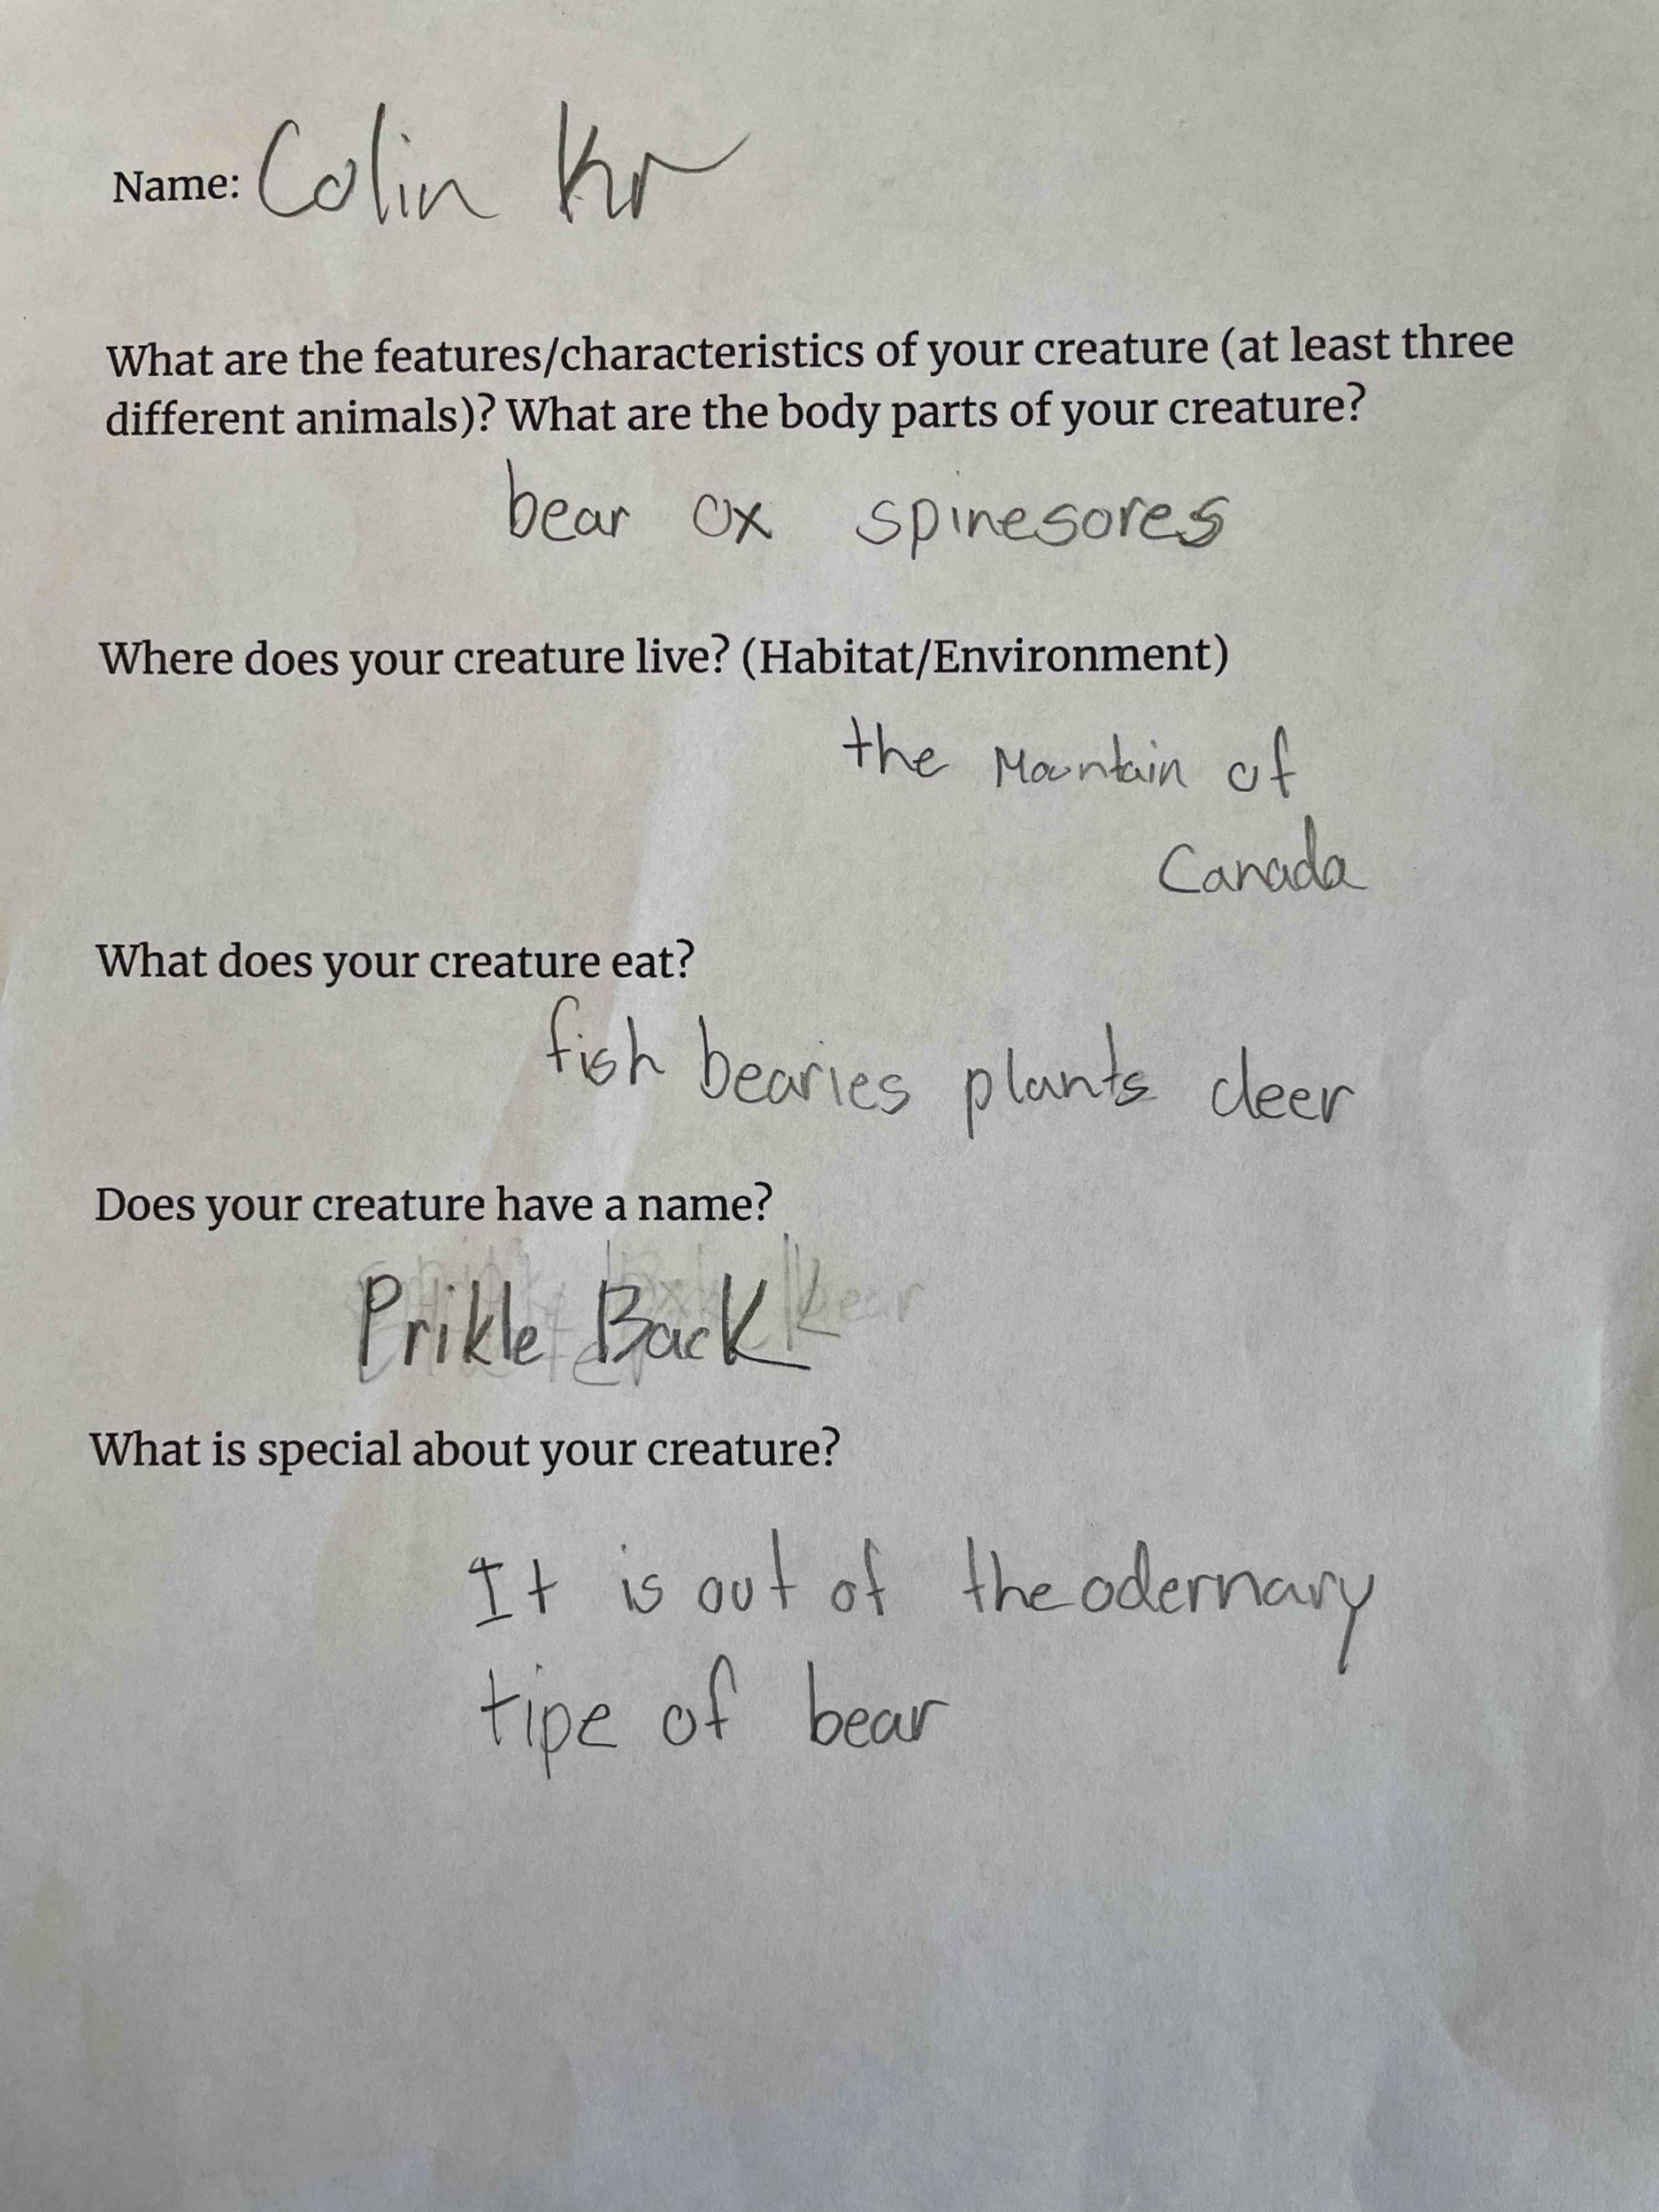 Name: Colin Kr
What are the features/characteristics of your creature (at least three
different animals)? What are the body parts of your creature?
bear ox spinesores
Where does your creature live? (Habitat/Environment)
the Mountain of
Canada
What does your creature eat?
fish bearies plants deer
Does your creature have a name?
Prikle Back
What is special about your creature?
It is out of the odernary
tipe of bear